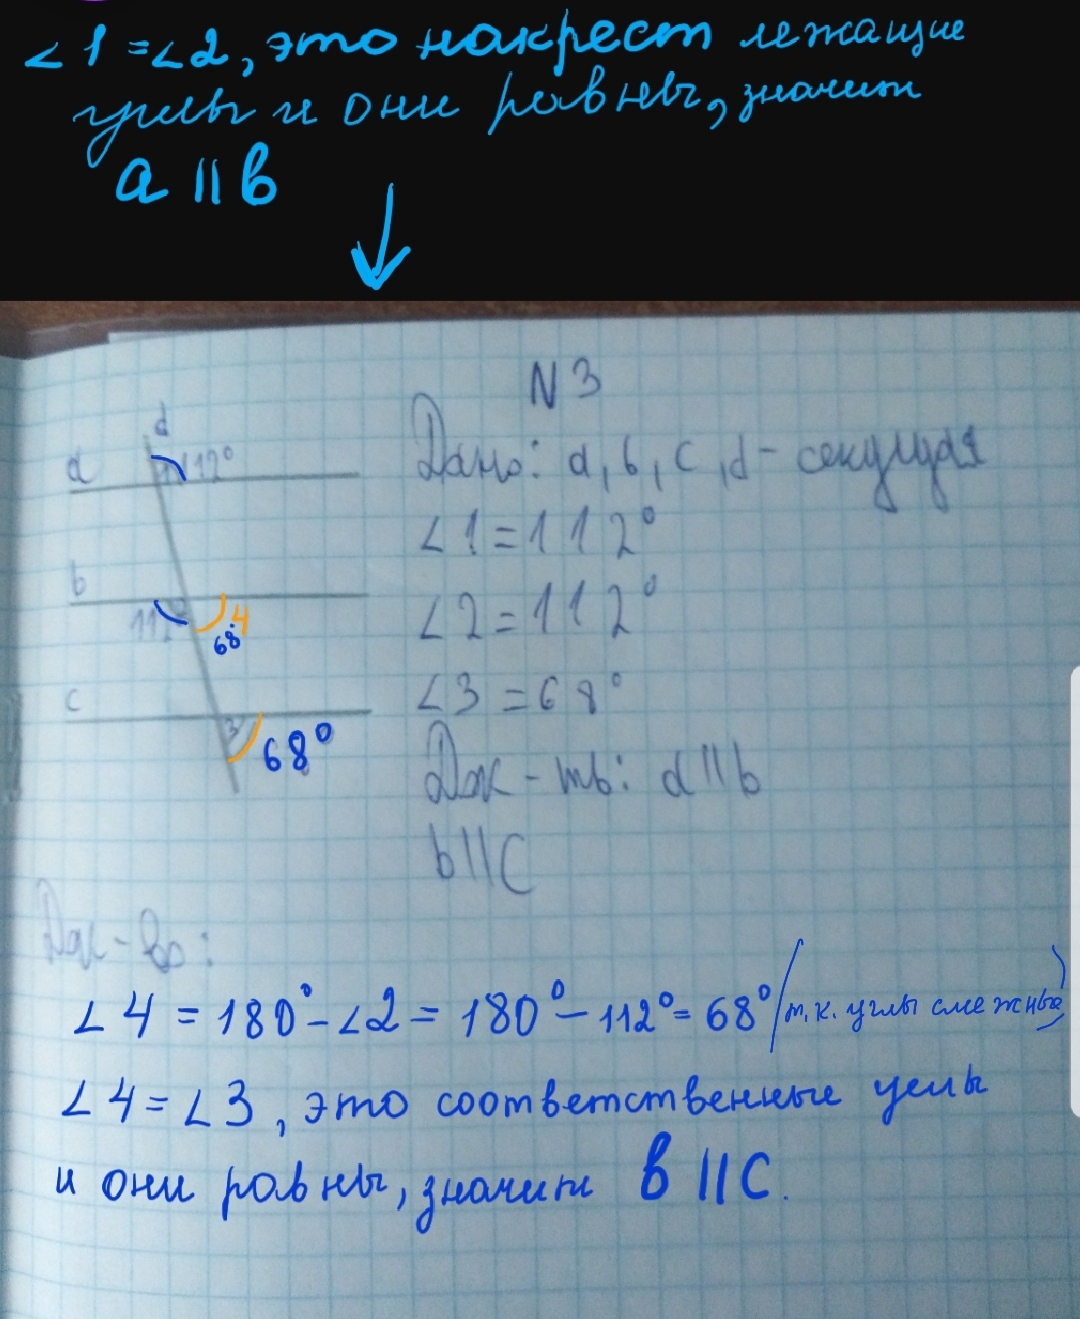 ∠1=∠2, это накрест лежащие
углы и они равны, значит
a || b
N 3
d
a
112°
Дано: a, b, c, d - секущая
∠1=112°
b
∠2=112°
4
68°
c
∠3=68°
3
68°
Док-ть: a||b
b||c
Док-во:
∠4=180°-∠2=180°-112°=68° (т.к. углы смежные)
∠4=∠3, это соответственные углы
и они равны, значит b||c.